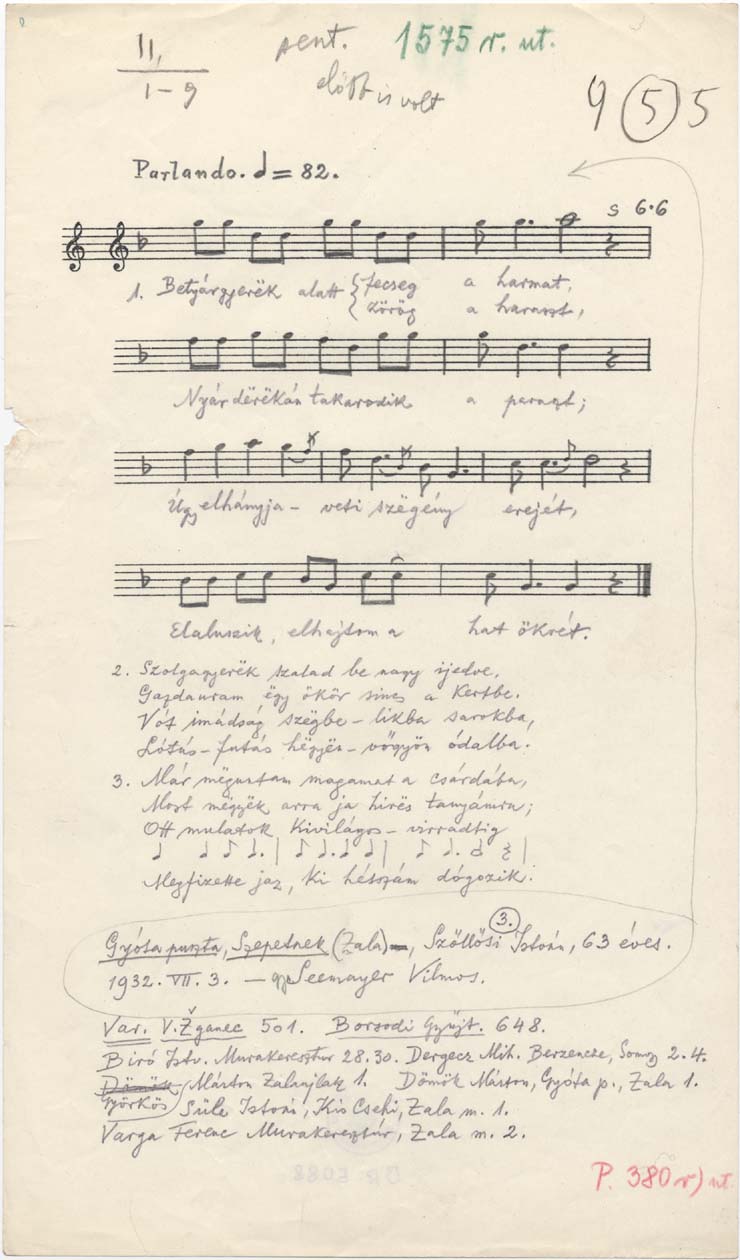 II,
1-9
pent.
előbb is volt
1575 r. ut.
9 5 5
Parlando. = 82.
s 6·6
1. Betyárgyerëk alatt fecseg a harmat,
zörög a haraszt,
Nyár dërëkán takarodik a paraszt;
Úgy elhányja- veti szëgény erejét,
Elaluszik, elhajtom a hat ökrét.
2. Szolgagyerëk szalad be nagy ijedve,
Gazduram ëgy ökör sincs a kertbe.
Vót imádság szëgbe-likba sarokba,
Lótás-futás hëgyën-völgyön ódalba.
3. Már mëguntam magamat a csárdába,
Most mëgyëk arra ja hirës tanyámra;
Ott mulatok kivilágos-virradtig
Megfizette jaz, ki hétszám dógozik.
3.
Gyóta puszta, Szepetnek (Zala), Szöllősi István, 63 éves.
1932. VII. 3. - gy. Seemayer Vilmos.
Var. V. Žganec 501. Borsodi Gyűjt. 648.
Biró Istv. Murakeresztur 28.30. Dergecz Mih. Berzencze, Somogy 2.4.
Dömök Márton Zalaujlak 1. Dömök Márton, Gyóta p., Zala 1.
Györkös Süle István, Kis Csehi, Zala m. 1.
Varga Ferenc Murakeresztúr, Zala m. 2.
P. 380 r) ut.